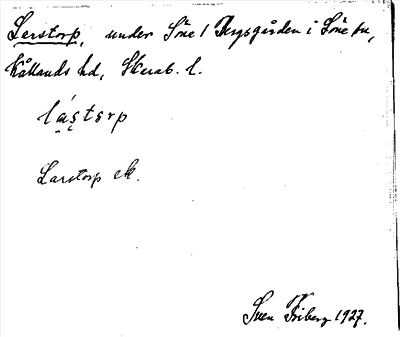 Lerstorp, under Söne / Bergsgården i Söne sn,
Kållands hd, Skarab. l.
lá̤ṣtorp
Larstorp ek.
Sven Friberg 1927.